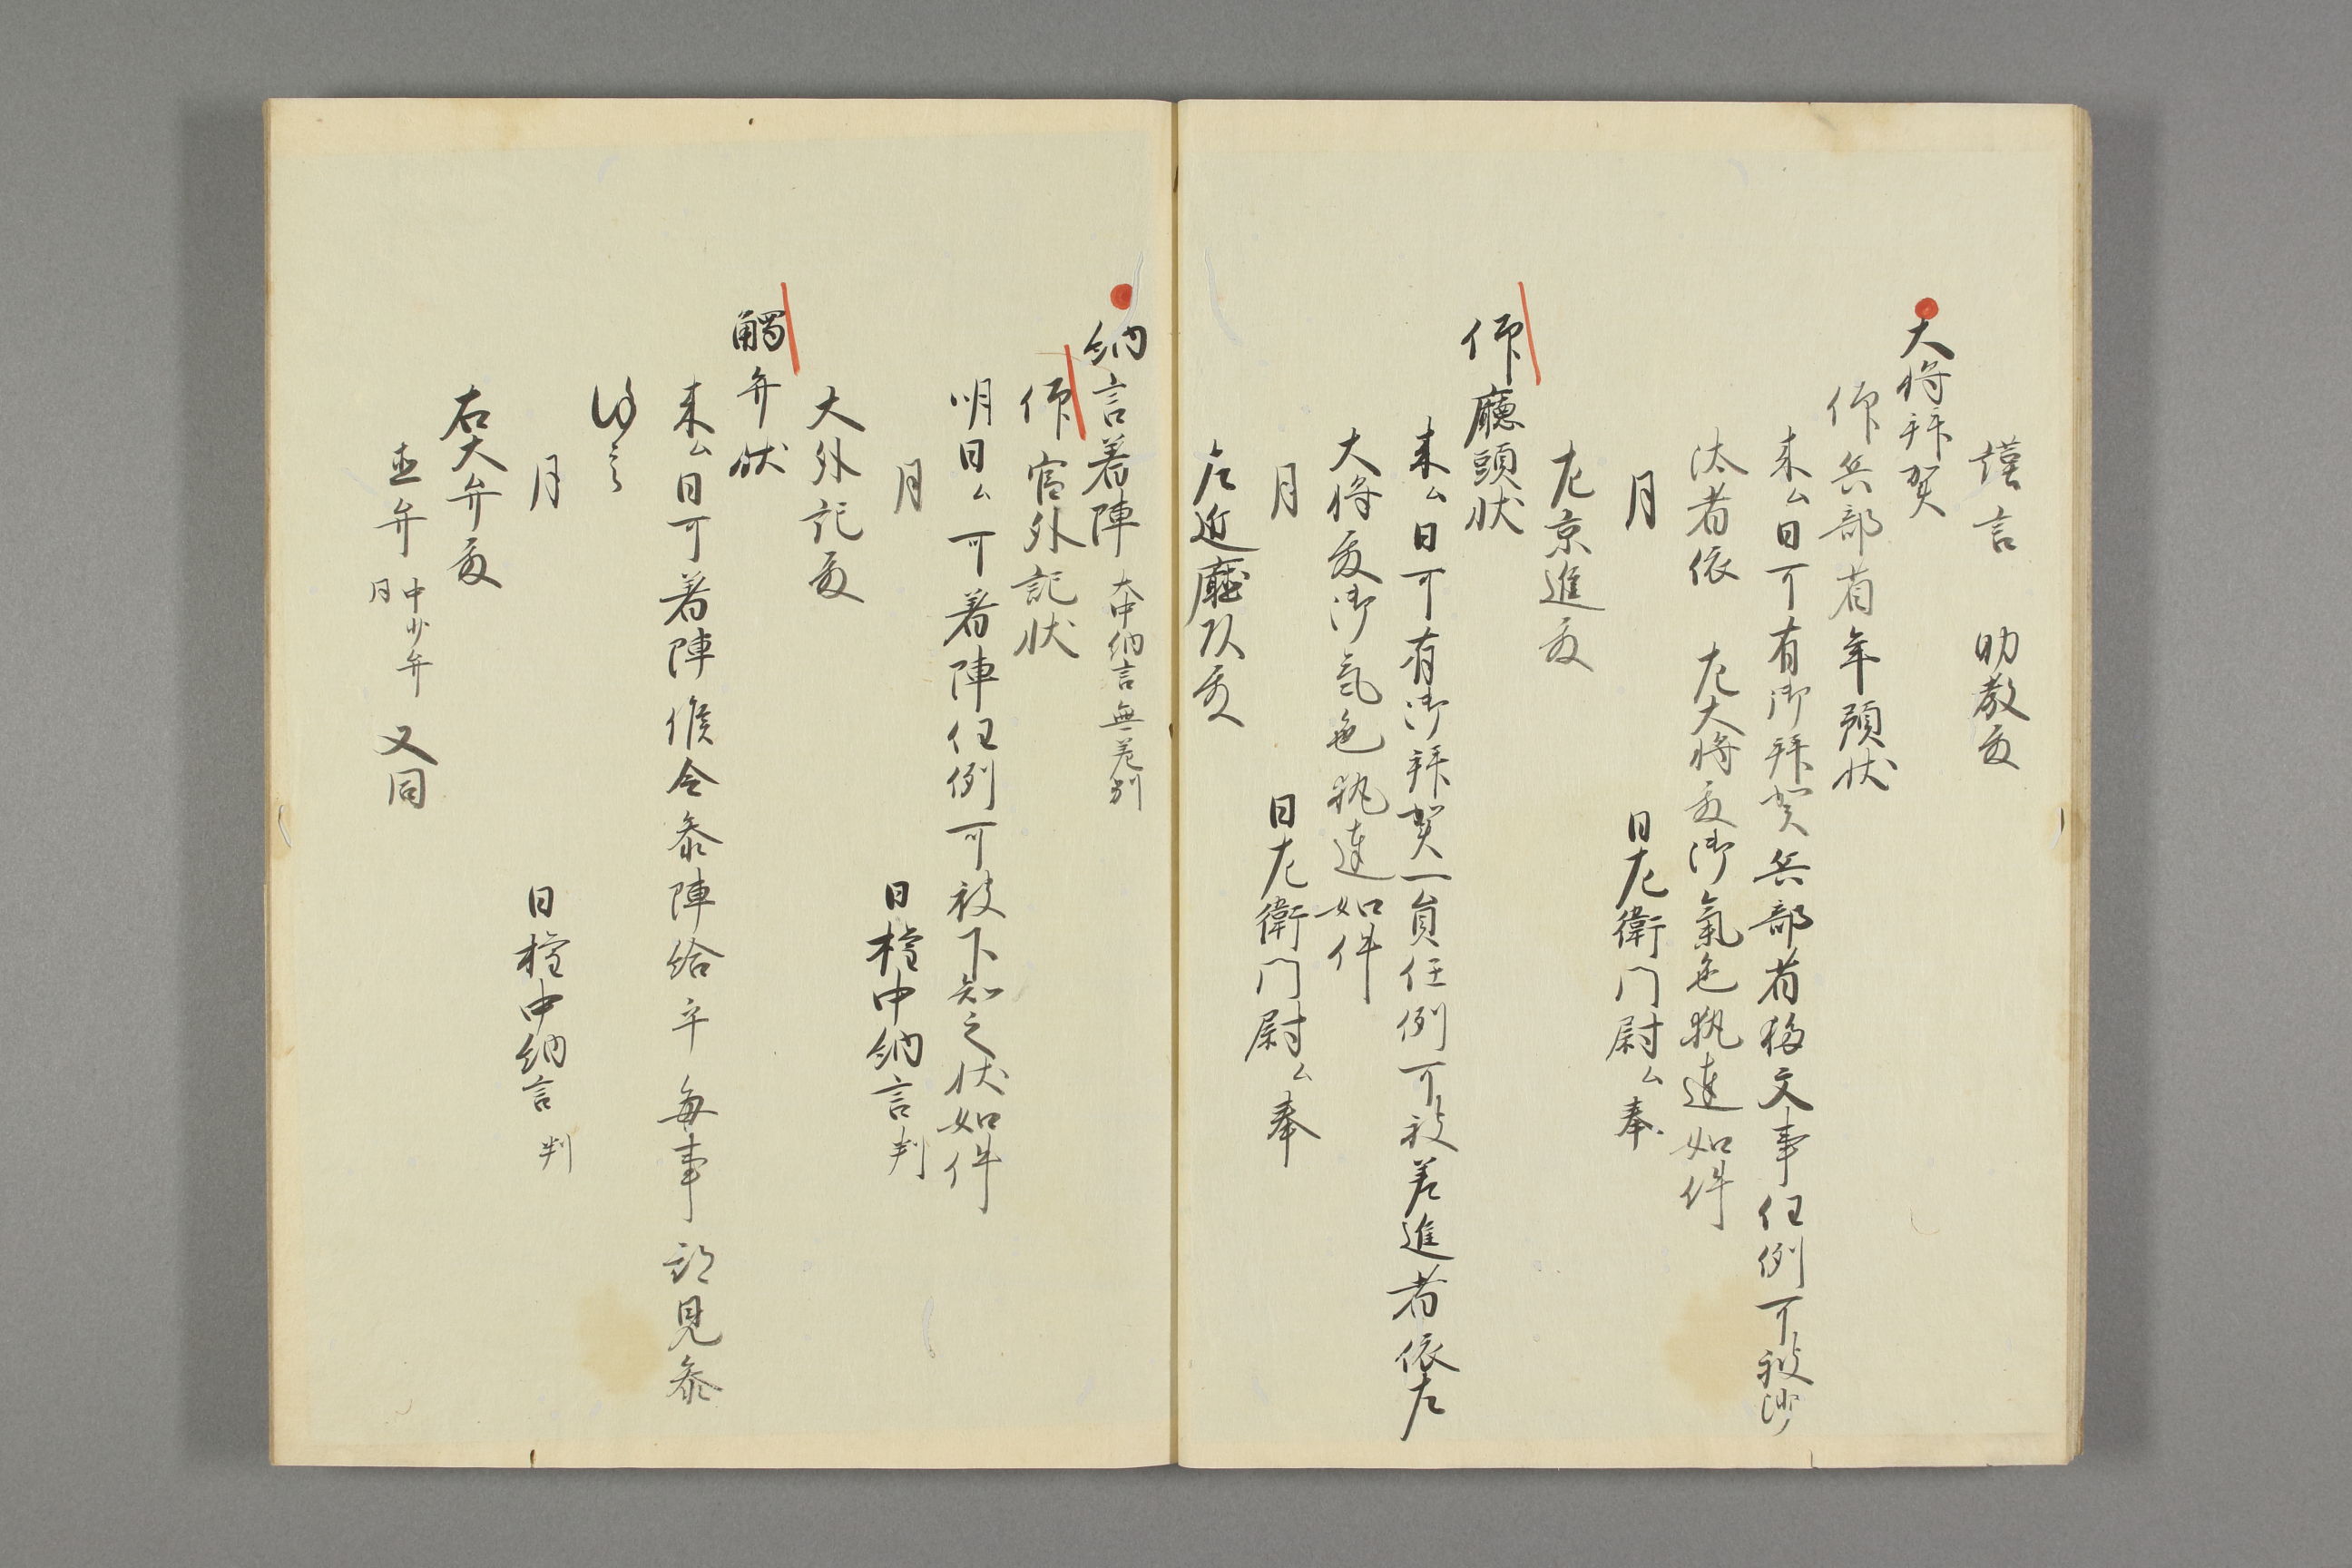 謹言　助教殿
大将拝賀
仰兵部省年預状
来ム日可有御拝賀兵部省移文事任例可被沙
汰者依　左大将殿御氣色執達如件
月　日左衛門尉ム奉
左京進殿
仰廳頭状
来ム日可有御拝賀一員任例可被差進者依左
大将殿御氣色執達如件
月　日左衛門尉ム奉
左近廳頭殿
納言着陣 大中納言無差別
仰官外記状
明日ム可着陣任例可被下知之状如件
月　日権中納言判
大外記殿
觸弁状
来ム日可着陣候令参陣給乎毎事期見参
謹言
月　日権中納言判
右大弁殿
直弁 中少弁同 又同